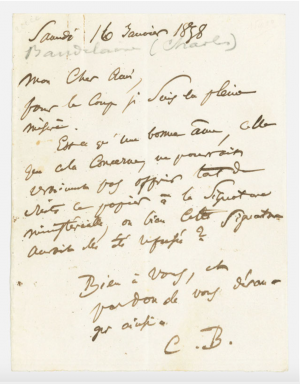 Samedi 16 Janvier 1858
Baudelaire (Charles)
Mon Cher Ami,
pour le coup je suis en pleine
misère.
Est-ce qu'une bonne âme, celle
que cela concerne, ne pourrait
vraiment vous offrir tout de
suite ce papier à la signature
ministérielle, ou bien cette signature
aurait-elle été refusée ?
Bien à vous, et
pardon de vous déran-
ger ainsi.
C. B.